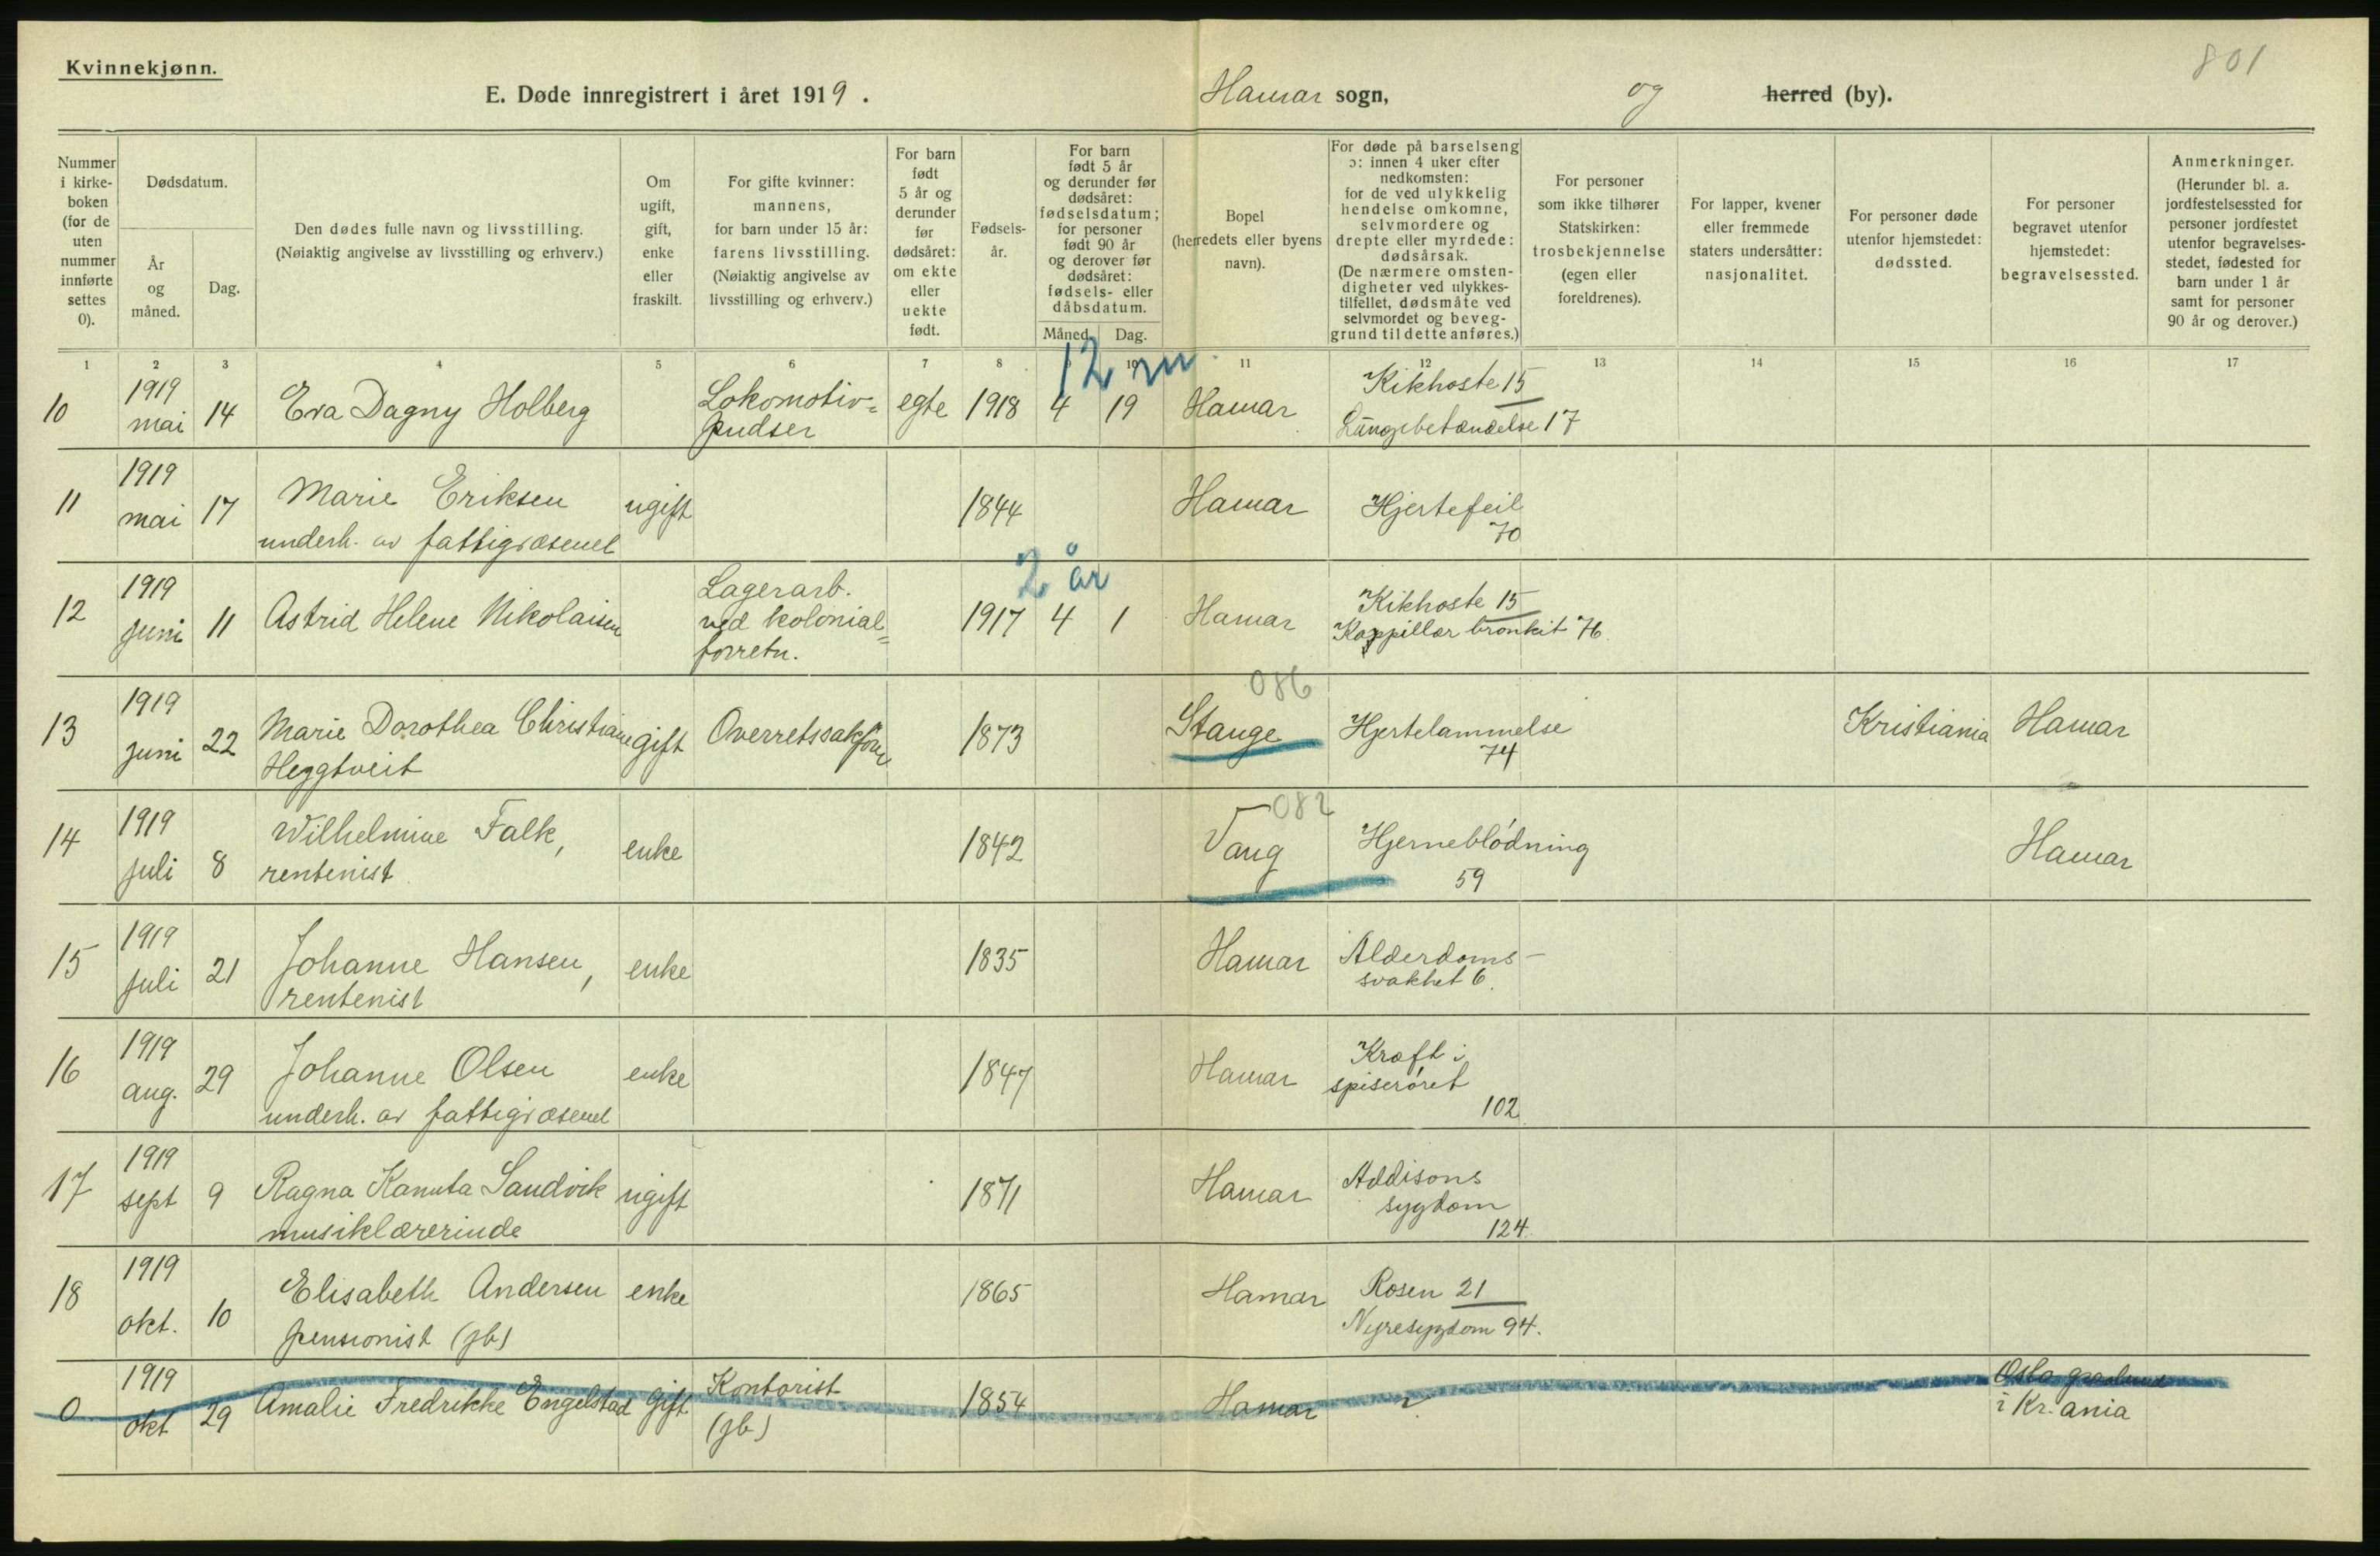 801
Kvinnekjønn.
E. Døde innregistrert i året 1919. Hamar sogn, og herred (by).
Nummer i kirke-boken (for de uten nummer innførte settes 0).
Dødsdatum.
År og måned.
Dag.
Den dødes fulle navn og livsstilling.
(Nøiaktig angivelse av livsstilling og erhverv.)
Om ugift, gift, enke eller fraskilt.
For gifte kvinner: mannens, for barn under 15 år: farens livsstilling.
(Nøiaktig angivelse av livsstilling og erhverv.)
For barn født 5 år og derunder før dødsåret: om ekte eller uekte født.
Fødsels-år.
For barn født 5 år og derunder før dødsåret: fødselsdatum; for personer født 90 år og derover før dødsåret: fødsels- eller dåbsdatum.
Måned.
Dag.
Bopel (herredets eller byens navn).
For døde på barselseng ɔ: innen 4 uker efter nedkomsten: for de ved ulykkelig hendelse omkomne, selvmordere og drepte eller myrdede: dødsårsak.
(De nærmere omsten-digheter ved ulykkes-tilfellet, dødsmåte ved selvmordet og beveg-grund til dette anføres.)
For personer som ikke tilhører Statskirken: trosbekjennelse (egen eller foreldrenes).
For lapper, kvener eller fremmede staters undersåtter: nasjonalitet.
For personer døde utenfor hjemstedet: dødssted.
For personer begravet utenfor hjemstedet: begravelsessted.
Anmerkninger.
(Herunder bl. a. jordfestelsessted for personer jordfestet utenfor begravelses-stedet, fødested for barn under 1 år samt for personer 90 år og derover.)
1 2 3 4 5 6 7 8 10 11 12 13 14 15 16 17
12 m
10 1919 mai 14 Eva Dagny Holberg Lokomotiv=pudser egte 1918 4 19 Hamar Kikhoste 15
Lungebetændelse 17
11 1919 mai 17 Marie Eriksen ugift 1844 Hamar Hjertefeil 70
underh. av fattigvæsenet
2 år
12 1919 juni 11 Astrid Helene Nikolaisen Lagerarb. ved kolonial=forretn. 1917 4 1 Hamar Kikhoste 15
Kappillær bronkit 76.
086
13 1919 juni 22 Marie Dorothea Christiane Heggtveit gift Overretssakfører 1873 Stange Hjertelammelse 74 Kristiania Hamar
082
14 1919 juli 8 Wilhelmine Falk, rentenist enke 1842 Vang Hjerneblødning 59 Hamar
15 1919 juli 21 Johanne Hansen, rentenist enke 1835 Hamar Alderdoms-svakhet 6.
16 1919 aug. 29 Johanne Olsen enke 1847 Hamar Kræft i spiserøret 102
underh. av fattigvæsenet
17 1919 sept 9 Ragna Kanuta Sandvik ugift 1871 Hamar Addisons sygdom 124.
musiklærerinde
18 1919 okt. 10 Elisabeth Andersen enke 1865 Hamar Rosen 21
pensionist (jb) Nyresygdom 94.
0 1919 okt 29 Amalie Fredrikke Engelstad gift Kontorist (jb) 1854 Hamar ? Oslo gravlund i Kr.ania